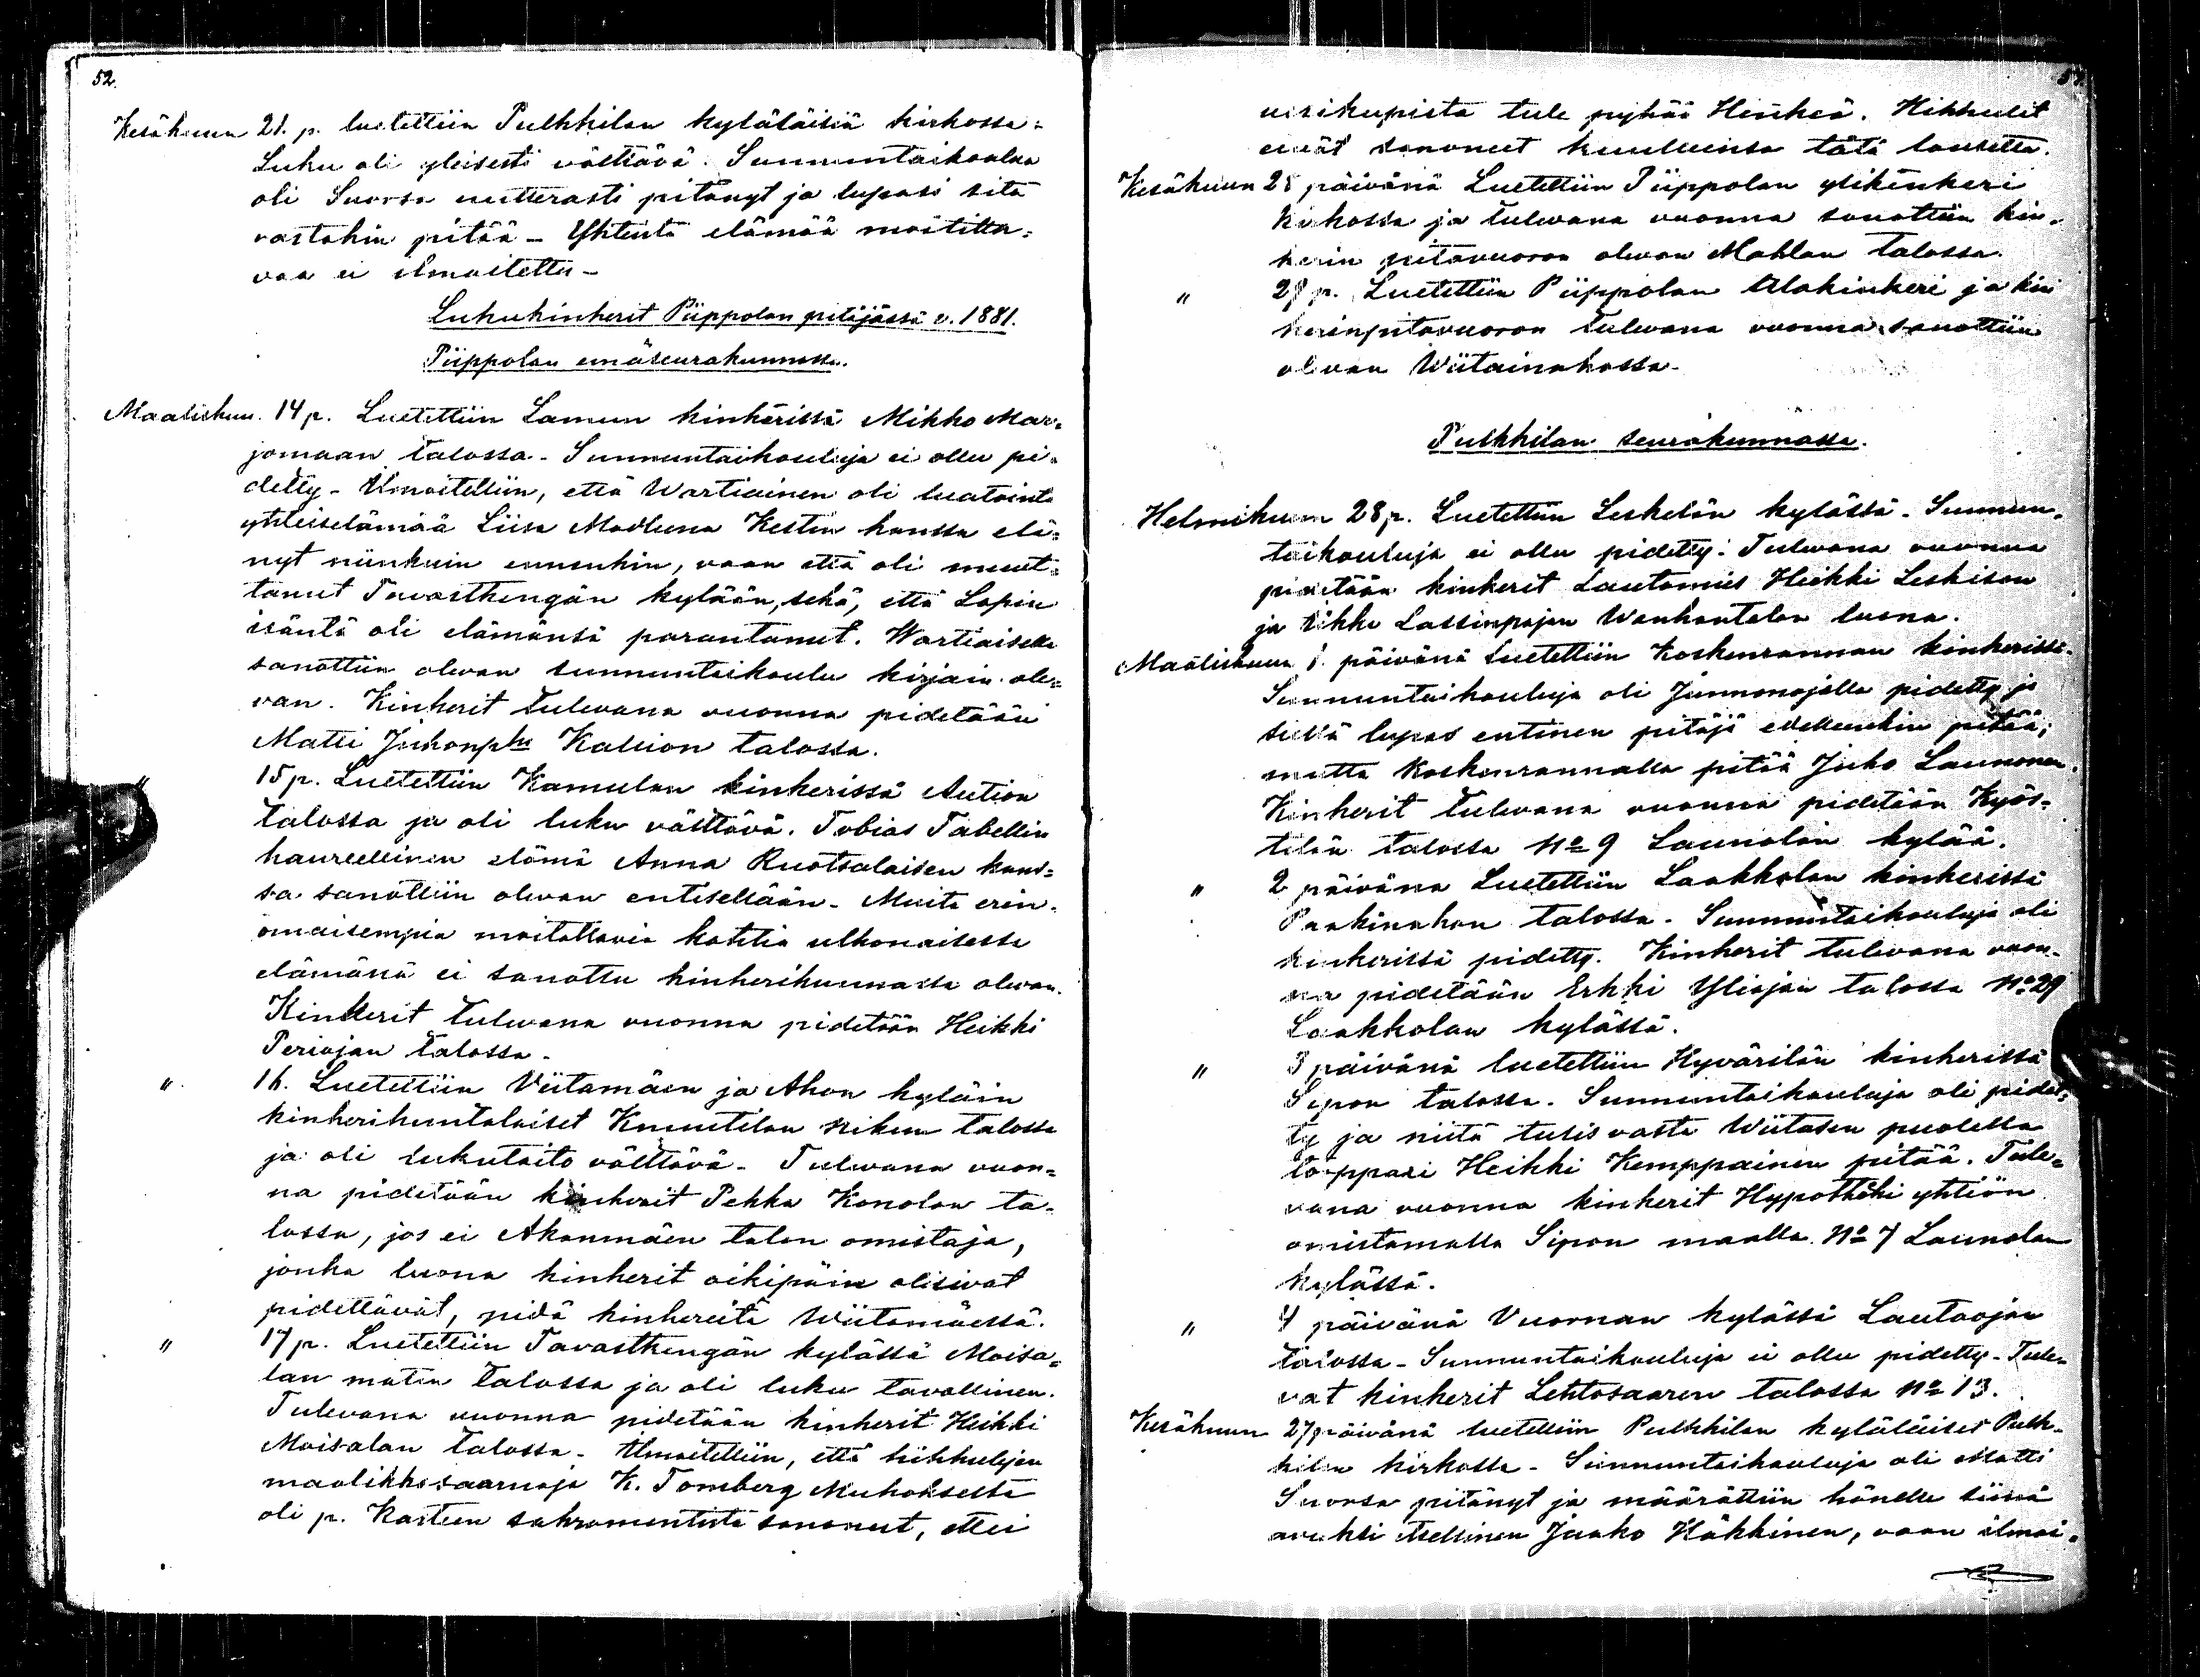 52.
Kesäkuun 21. p. luetettiin Pulkkilan kyläläisiä kirkossa.
Luku oli yleisesti välttävä. Sunnuntaikoulua
oli Suorsa uutterasti pitänyt ja lupasi sitä
vastakin pitää - Yhteistä elämää moititta-
vaa ei ilmoitettu -
Lukukinkerit Piippolan pitäjässä v. 1881.
Piippolan emäseurakunnassa.
Maaliskuu. 14 p. Luetettiin Lamun kinkerissä Mikko Mar-
jomaan talossa. Sunnuntaikouluja ei ollu pi-
detty. Ilmoitettiin, että Wartiainen oli luatointa
yhteiselämää Liisa Madleena Kestin kanssa elä-
nyt niinkuin ennenkin, vaan että oli muut-
tanut Tavastkengän kylään, sekä, että Lapin
isäntä oli elämänsä parantanut. Wartiaisella
sanottiin olevan sunnuntaikoulu kirjain ole-
van. Kinkerit tulevana vuonna pidetään
Matti Juhonp. Kallion talossa.
" 15 p. Luetettiin Kamulan kinkerissä Aution
talossa ja oli luku välttävä. Tobias Tabellin
haureellinen elämä Anna Ruotsalaisen kans-
sa sanottiin olevan entisellään. Muita erin-
omaisempia moitittavia kohtia ulkonaisessa
elämänä ei sanottu kinkerikunnassa olevan.
Kinkerit tulevana vuonna pidetään Heikki
Periojan talossa.
" 16. Luetettiin Viitamäen ja Ahon kyläin
kinkerikuntalaiset Knuutilan talossa
ja oli lukutaito välttävä. Tulevana vuon-
na pidetään kinkerit Pekka Konolan ta-
lossa, jos ei Akanmäen talon omistaja,
jonka luona kinkerit oikipäin olisivat
pidettävät, pidä kinkereitä Wiitamäessä.
" 17 p. Luetettiin Tavastkengän kylässä Moisa-
lan matin talossa ja oli luku tavallinen.
Tulevana vuonna pidetään kinkerit Heikki
Moisalan talossa. Ilmoitettiin, että hihhulijen
maalikkosaarnaja K. Tornberg Muhokselta
oli p. Kasteen sakramentista sanonut, ettei
vesikupista tule pyhää Henkeä. Hihhulit
eivät sanoneet kuulleensa tätä lausetta.
Kesäkuun 28 päivänä Luetettiin Piippolan ylikinkeri
kirkossa ja tulevana vuonna sanottiin kin-
kerin pitovuoron olevan Mahlan talossa.
" 29 p. Luetettiin Piippolan Alakinkeri ja kin
kerinpitovuoron tulevana vuonna sanottiin
olevan Wiitainahossa.
Pulkkilan seurakunnassa.
Helmikuun 28 p. Luetettiin Leskelän kylässä. Sunnun-
taikouluja ei ollu pidetty. Tulevana vuonna
pidetään kinkerit Lautamies Heikki Leskisen
ja Lassinpojan Wanhantalon luona.
Maaliskuun 1. päivänä luetettiin Koskenrannan kinkerissä.
Sunnuntaikouluja oli Junnonojalla pidetty ja
siellä lupas entinen pitäjä edelleenkin pitää;
mutta Koskenrannalla pitää Juho Launonen.
Kinkerit tulevana vuonna pidetään Kyös-
tilän talossa No 9 Launolan kylää.
" 2 päivänä Luetettiin Laakkolan kinkerissä
Paakinahon talossa. Sunnuntaikouluja oli
kinkerissä pidetty. Kinkerit tulevana vuon-
na pidetään Erkki Yliojan talossa No 29
Laakkolan kylässä.
" 3 päivänä luetettiin Hyvärilän kinkerissä
Sipon talossa. Sunnuntaikouluja oli pidet-
ty ja niitä tulis vasta Wiitasen puolella
loppari Heikki Kemppainen pitää. Tule-
vana vuonna kinkerit Hypotheki yhtiön
omistamalla Sipon maalla No 7 Launolan
kylässä.
" 4 päivänä Vuornan kylässä Lautaojan
talossa - Sunnuntaikouluja ei ollu pidetty. Tule-
vat kinkerit Lehtosaaren talossa No 13.
Kesäkuun 27 päivänä luetettiin Pulkkilan kyläläiset Pulk-
kilan kirkossa. Sunnuntaikouluja oli Matti
Suorsa pitänyt ja määrättiin hänelle siinä
avuksi itsellinen Jaako Häkkinen, vaan ilmoi-